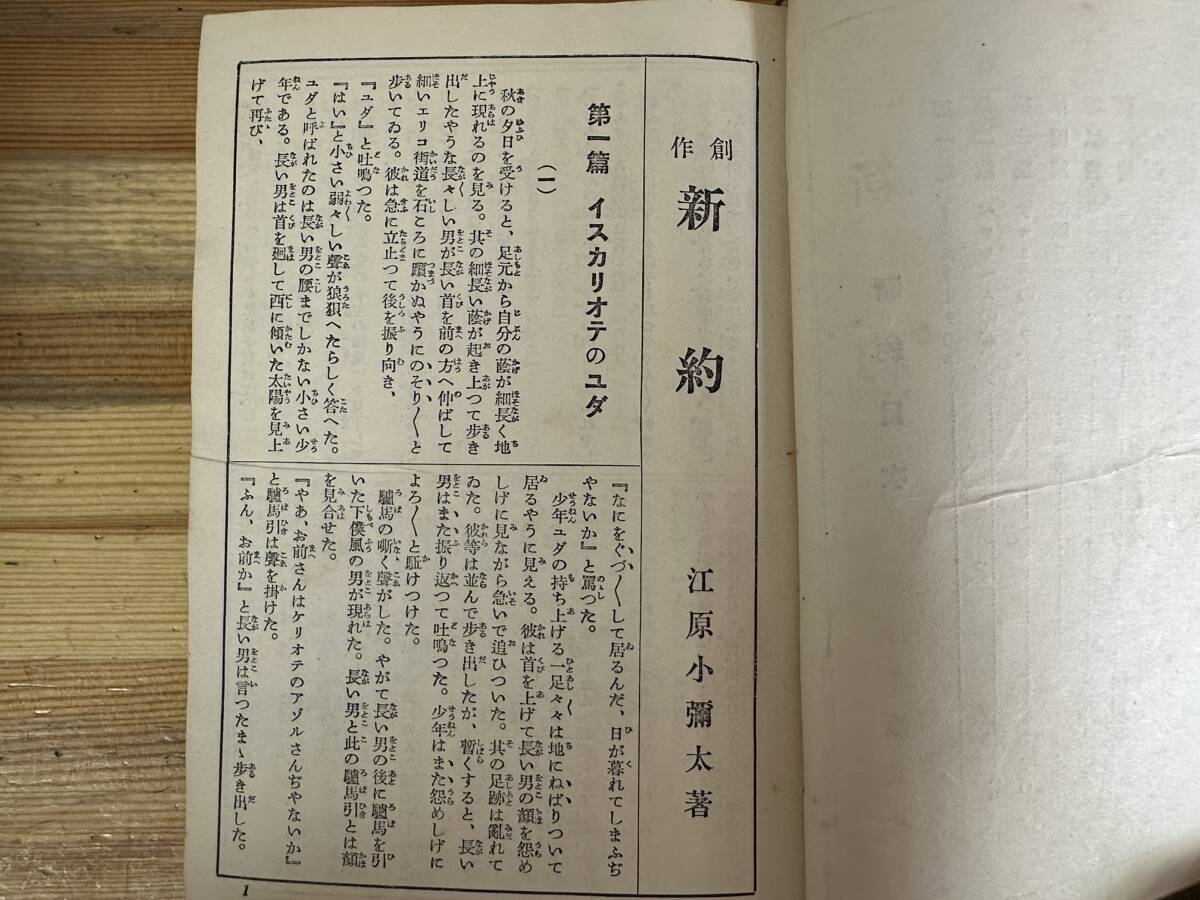 創作
新約
江原小彌太著
第一篇 イスカリオテのユダ
(一)
秋の夕日を受けると、足元から自分の蔭が細長く地
上に現れるのを見る。其の細長い蔭が起き上つて歩き
出したやうな長々しい男が長い首を前の方へ伸ばして
細いエリコ街道を石ころに躓かぬやうにのそり〳〵と
歩いてゐる。彼は急に立止つて後を振り向き、
『ユダ』と吐鳴つた。
『はい』と小さい弱々しい聲が狼狽へたらしく答へた。
ユダと呼ばれたのは長い男の腰までしかない小さい少
年である。長い男は首を廻して西に傾いた太陽を見上
げて再び、
『なにをぐづ〳〵して居るんだ、日が暮れてしまふぢ
やないか』と罵つた。
少年ユダの持ち上げる一足々々は地にねばりついて
居るやうに見える。彼は首を上げて長い男の顔を怨め
しげに見ながら急いで追ひついた。其の足跡は亂れて
ゐた。彼等は並んで歩き出したが、暫くすると、長い
男はまた振り返つて吐鳴つた。少年はまた怨めしげに
よろ〳〵と駈けつけた。
驢馬の嘶く聲がした。やがて長い男の後に驢馬を引
いた下僕風の男が現れた。長い男と此の驢馬引とは顔
を見合せた。
『やあ、お前さんはケリオテのアゾルさんぢやないか』
と驢馬引は聲を掛けた。
『ふん、お前か』と長い男は言つたまゝ歩き出した。
1